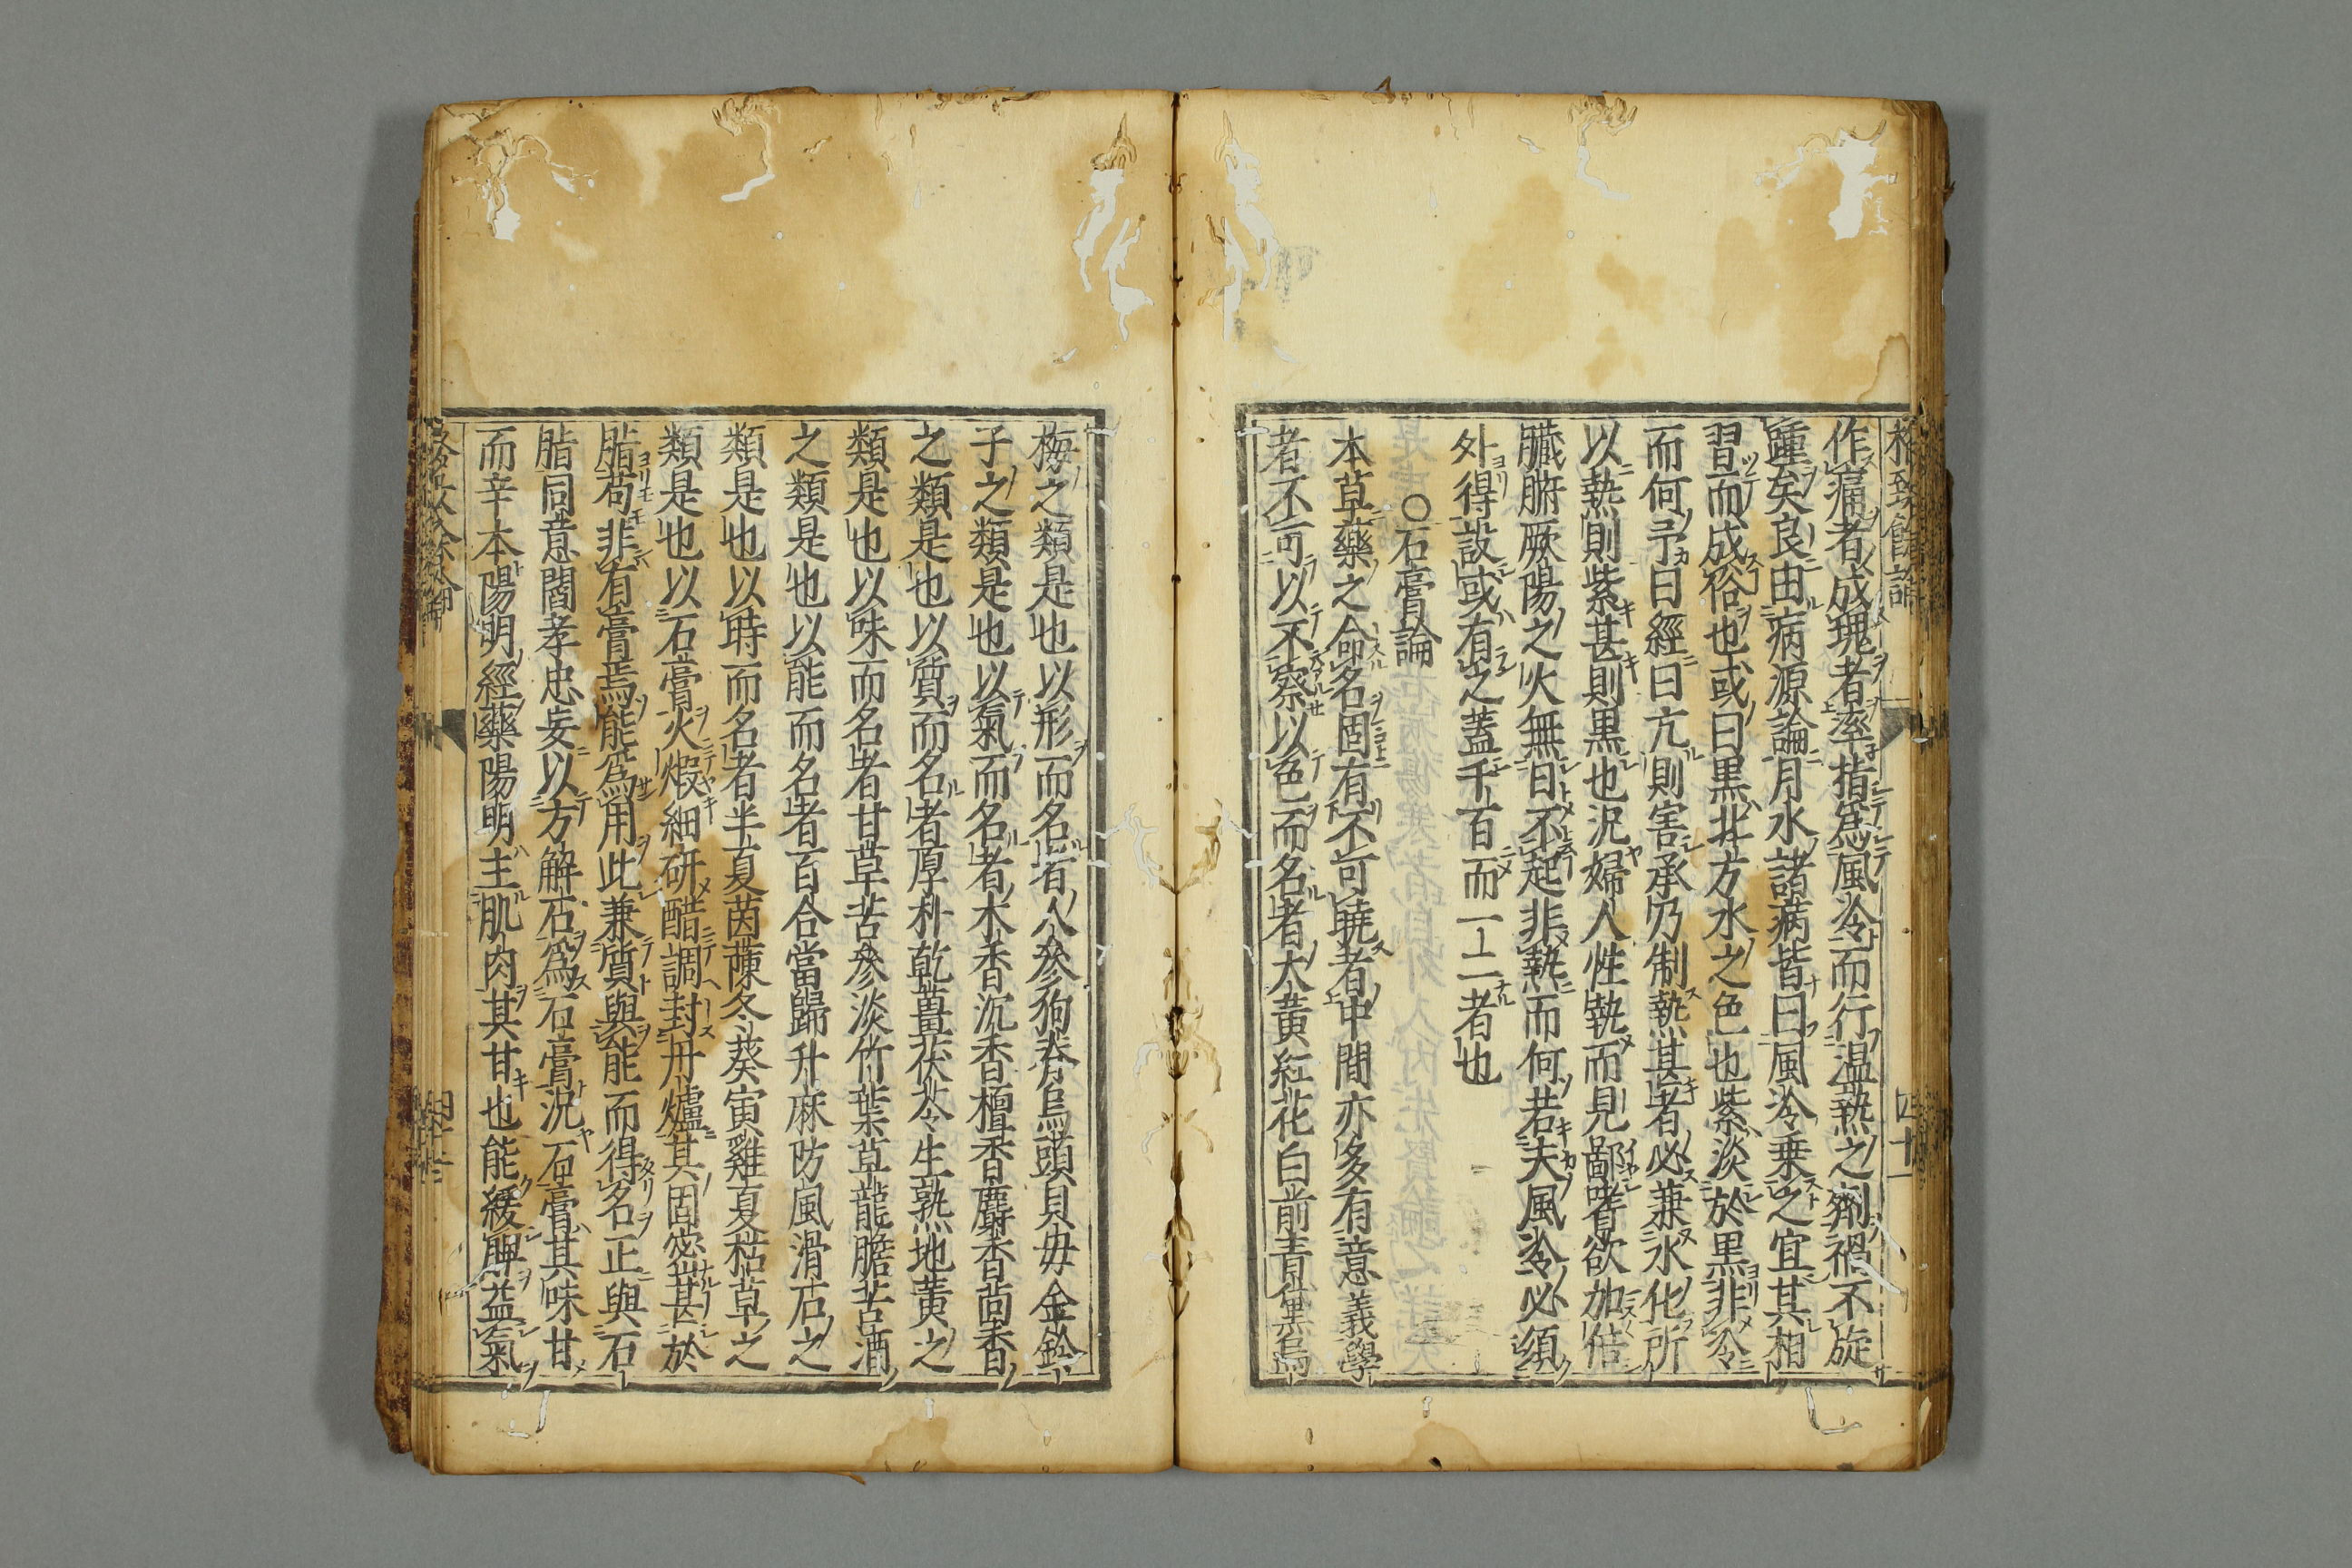 格致餘論
四十一
作痛者成瑰者率指爲風冷而行温熱之劑禍不旋
踵矣良由病源論月水諸病皆曰風冷乗之宜其相
習而成俗也或曰黒北方水之色也紫淡於黒非冷
而何予曰經曰亢則害承乃制熱甚者必兼水化所
以熱則紫甚則黒也況婦人性執而見鄙嗜欲加倍
臓腑厥陽之火無日不起非熱而何若夫風冷必須
外得設或有之蓋千百而一二者也
○石膏論
本草藥之命名固有不可曉者中間亦多有意義學
者不可以不察以色而名者大黄紅花白前青黛烏
梅之類是也以形而名者人參狗脊烏頭貝母金鈴
子之類是也以氣而名者木香沉香檀香麝香茴香
之類是也以質而名者厚朴乾薑茯苓生熟地黄之
類是也以味而名者甘草苦參淡竹葉草龍膽苦酒
之類是也以能而名者百合當歸升麻防風滑石之
類是也以時而名者半夏茵蔯冬葵寅雞夏枯草之
類是也以石膏火煆細研醋調封丹爐其固宻甚於
脂苟非有膏焉能爲用此兼質與能而得名正與石
脂同意閻孝忠妄以方解石爲石膏況石膏其味甘
而辛本陽明經藥陽明主肌肉其甘也能緩脾益氣